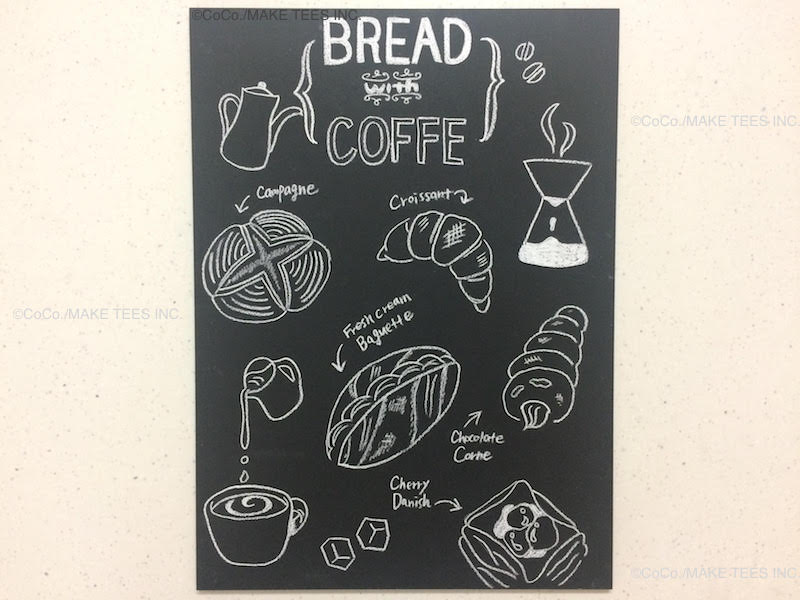 ©CoCo./MAKE TEES INC.
BREAD
with
COFFE
©CoCo./MAKE TEES INC.
Campagne
Croissant
©CoCo./MAKE TEES INC.
Fresh cream
Baguette
Chocolate
Corne
Cherry
Danish
©CoCo./MAKE TEES INC.